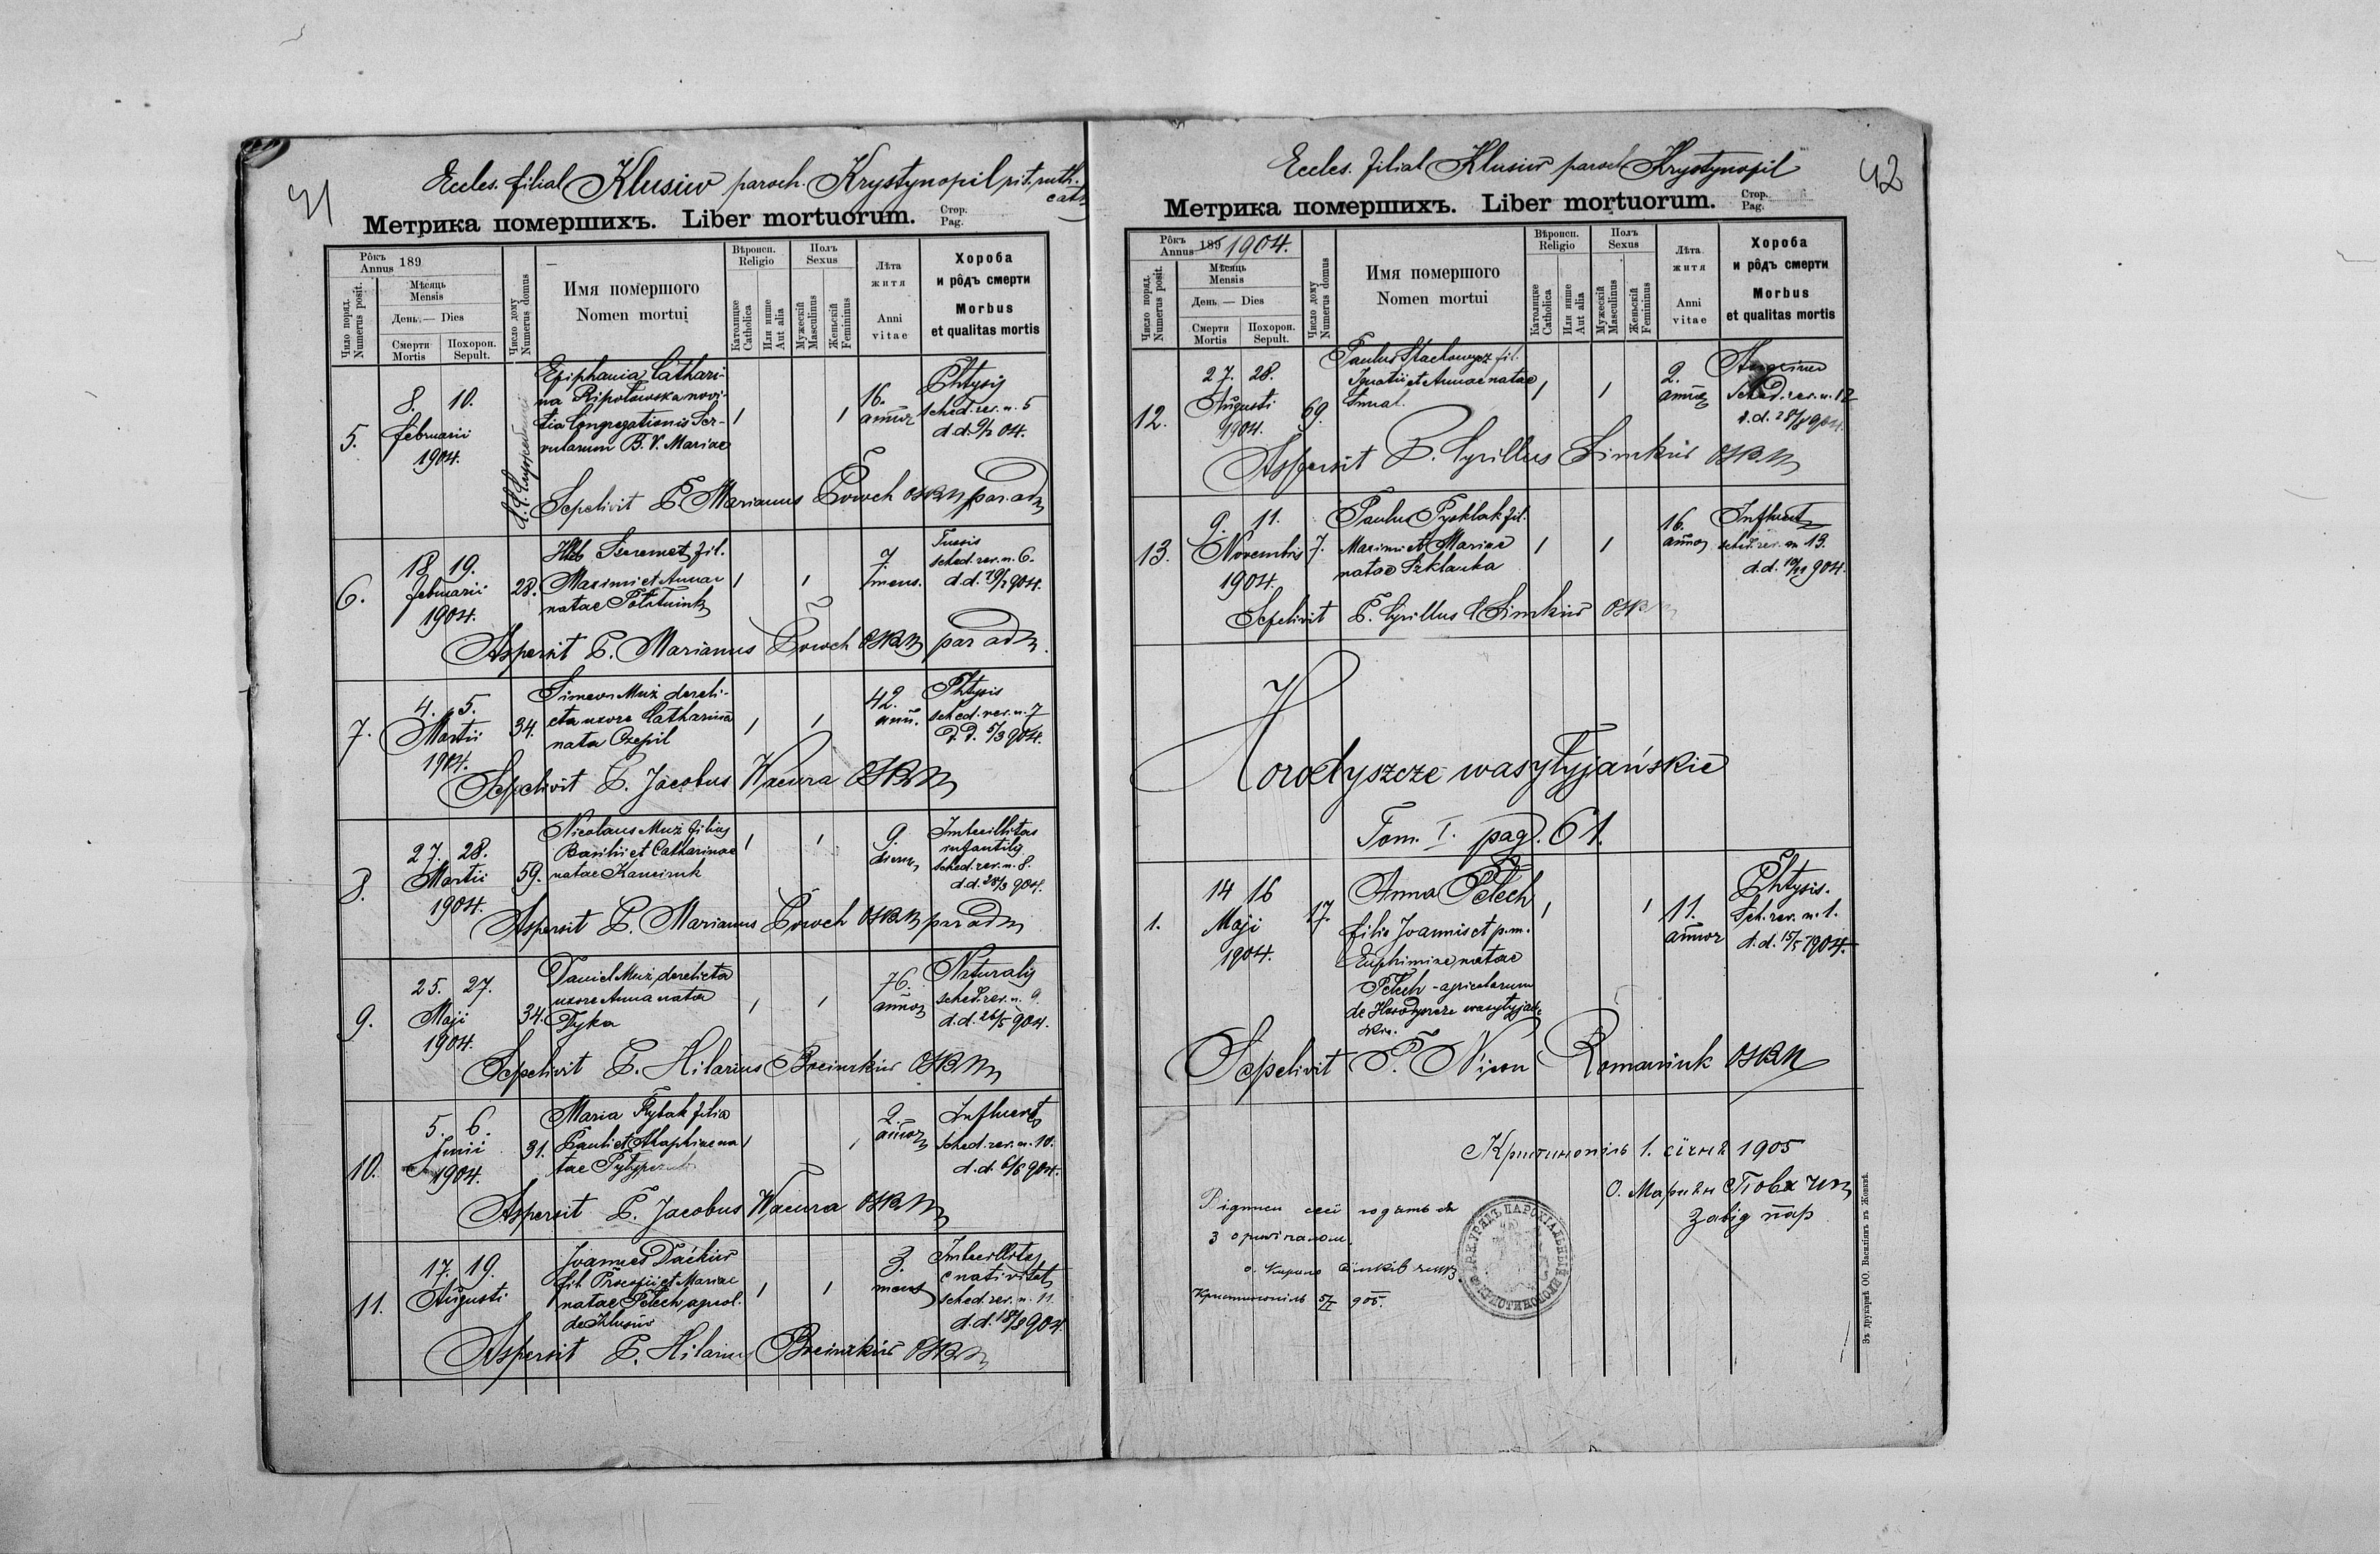 41
Eccles. filial Klusiw paroch. Krystynopil rit. ruth.
cath
Метрика помершихъ. Liber mortuorum.
Стор.
Pag.
Рôкъ
Annus 189
Число поряд.
Numerus posit.
Мѣсяць
Mensis
День — Dies
Смерти
Mortis
Похорон.
Sepult.
Число дому
Numerus domus
Имя помершого
Nomen mortui
Вѣроисп.
Religio
Католицке
Catholica
Или инше
Aut alia
Полъ
Sexus
Мужескій
Masculinus
Женьскій
Femininus
Лѣта
житя
Anni
vitae
Хороба
и рôдъ смерти
Morbus
et qualitas mortis
5.
8. 10.
februarii
1904.
Epiphania Cathari-
na Ripołowska novi-
tia Congregationis Ser-
vularum B. V. Mariae
1
1
16.
annor
Phtysis
sched. rev. n. 5
d.d. 9/2 04.
Sepelivit P. Marianus Powch OSBM par adm
6.
18 19.
februarii
1904.
28.
Hlib Szeremet fil.
Maximi et Annae
natae
1
1
7.
mens.
Tussis
sched. rev. n. 6.
d.d. 19/2 904.
Aspersit P. Marianus Powch OSBM par adm.
7.
4. 5.
Martii
1904.
34.
Simeon Muż dereli-
cta uxore Catharina
nata Czepil
1
1
42.
ann.
Phtysis
sched. rev. n. 7
d.d. 5/3 904.
Sepelivit P. Jacobus Wacura OSBM
8.
27. 28.
Martii
1904.
59.
Nicolaus Muż filius
Basilii et Catharinae
natae
1
1
9.
dierum
Imbecillitas
infantilis
sched. rev. n. 8.
d.d. 28/3 904.
Aspersit P. Marianus Powch OSBM par adm
9.
25. 27.
Maji
1904.
34.
Daniel Muż, derelicta
uxore Anna nata
Dyka
1
1
76.
annor
Naturalis
sched. rev. n. 9.
d.d. 26/5 904.
Sepelivit P. Hilarius OSBM
10.
5. 6.
Junii
1904.
31.
Maria Rybak filia
Pauli et Ahaphiae na
tae
1
1
2.
annor
Influent
sched. rev. n. 10.
d.d. 6/6 904.
Aspersit P. Jacobus Wacura OSBM
11.
17. 19.
Augusti
Joannes Dackiw
fil. Procopii et Mariae
natae Pelech agricol.
de Klusiw
1
1
3.
mens
Imbecillitas
e nativitat
sched. rev. n. 11.
d.d. 18/8 904.
Aspersit P. Hilarius OSBM
42
Eccles. filial Klusiw paroch Krystynopil
Метрика помершихъ. Liber mortuorum.
Стор.
Pag.
Рôкъ
Annus 189 1904.
Число поряд.
Numerus posit.
Мѣсяць
Mensis
День — Dies
Смерти
Mortis
Похорон.
Sepult.
Число дому
Numerus domus
Имя помершого
Nomen mortui
Вѣроисп.
Religio
Католицке
Catholica
Или инше
Aut alia
Полъ
Sexus
Мужескій
Masculinus
Женьскій
Femininus
Лѣта
житя
Anni
vitae
Хороба
и рôдъ смерти
Morbus
et qualitas mortis
12.
27. 28.
Augusti
1904.
69.
Paulus Stachowycz fil.
Ignatii et Annae natae
1
1
2.
annor
sched. rev. n. 12
d.d. 28/8 904.
Aspersit P. Cyrillus Simkiw OSBM
13.
9. 11.
Novembris
1904.
7.
Paulus Pysklak fil.
Maximi et Mariae
natae Szklanka
1
1
16.
annor
Influent
sched. rev. n. 13.
d.d. 10/11 904.
Sepelivit P. Cyrillus Simkiw OSBM
Horodyszcze wasylyjańskie
Tom. I. pag. 61.
1.
14 16
Maji
1904.
17.
Anna Pelech
filia Joannis et p.m.
Euphimiae, natae
Pelech - agricolarum
de Horodyszcze wasylyjań-
skie.
1
1
11.
annor
Phtysis.
Sch. rev. n. 1.
d.d. 15/5 1904.
Sepelivit P. Nicon Romaniuk OSBM
Кристинопіль 1. січня 1905
О. Маріян Повх ЧСВВ
завід пар
згодить ся
з оригіналом.
о. Кирило Сімків ЧСВВ
Кристинопіль 5/II 905.
Зъ друкарнѣ ОО. Василіянъ въ Жовквѣ.